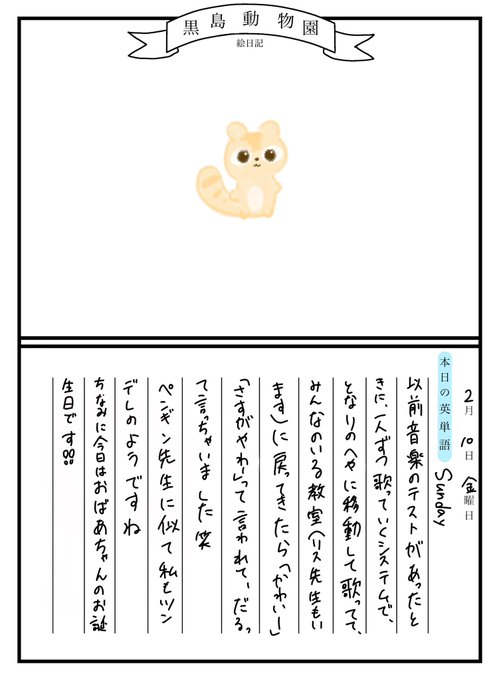 黒島動物園
絵日記
2月10日金曜日
本日の英単語 Sunday
以前音楽のテストがあったと
きに、一人ずつ歌っていくシステムで、
となりのへやに移動して歌ってて、
みんなのいる教室(リス先生もい
ます)に戻ってきたら「かわいー」
「さすがやわー」って言われて、「だるっ
て言っちゃいました笑
ペンギン先生に似て私もツン
デレのようですね
ちなみに今日はおばあちゃんのお誕
生日です!!